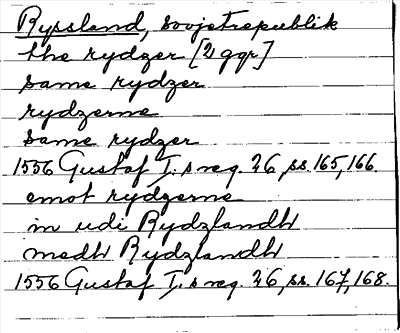 Ryssland, Sovjetrepublik
the rydzer [2 ggr]
same rydzer
rydzerne
same rydzer
1556 Gustaf I:s reg. 26, ss. 165, 166.
emot rydzerne
in udi Rydzlandh
medh Rydzlandh
1556 Gustaf I:s reg. 26, ss. 167, 168.